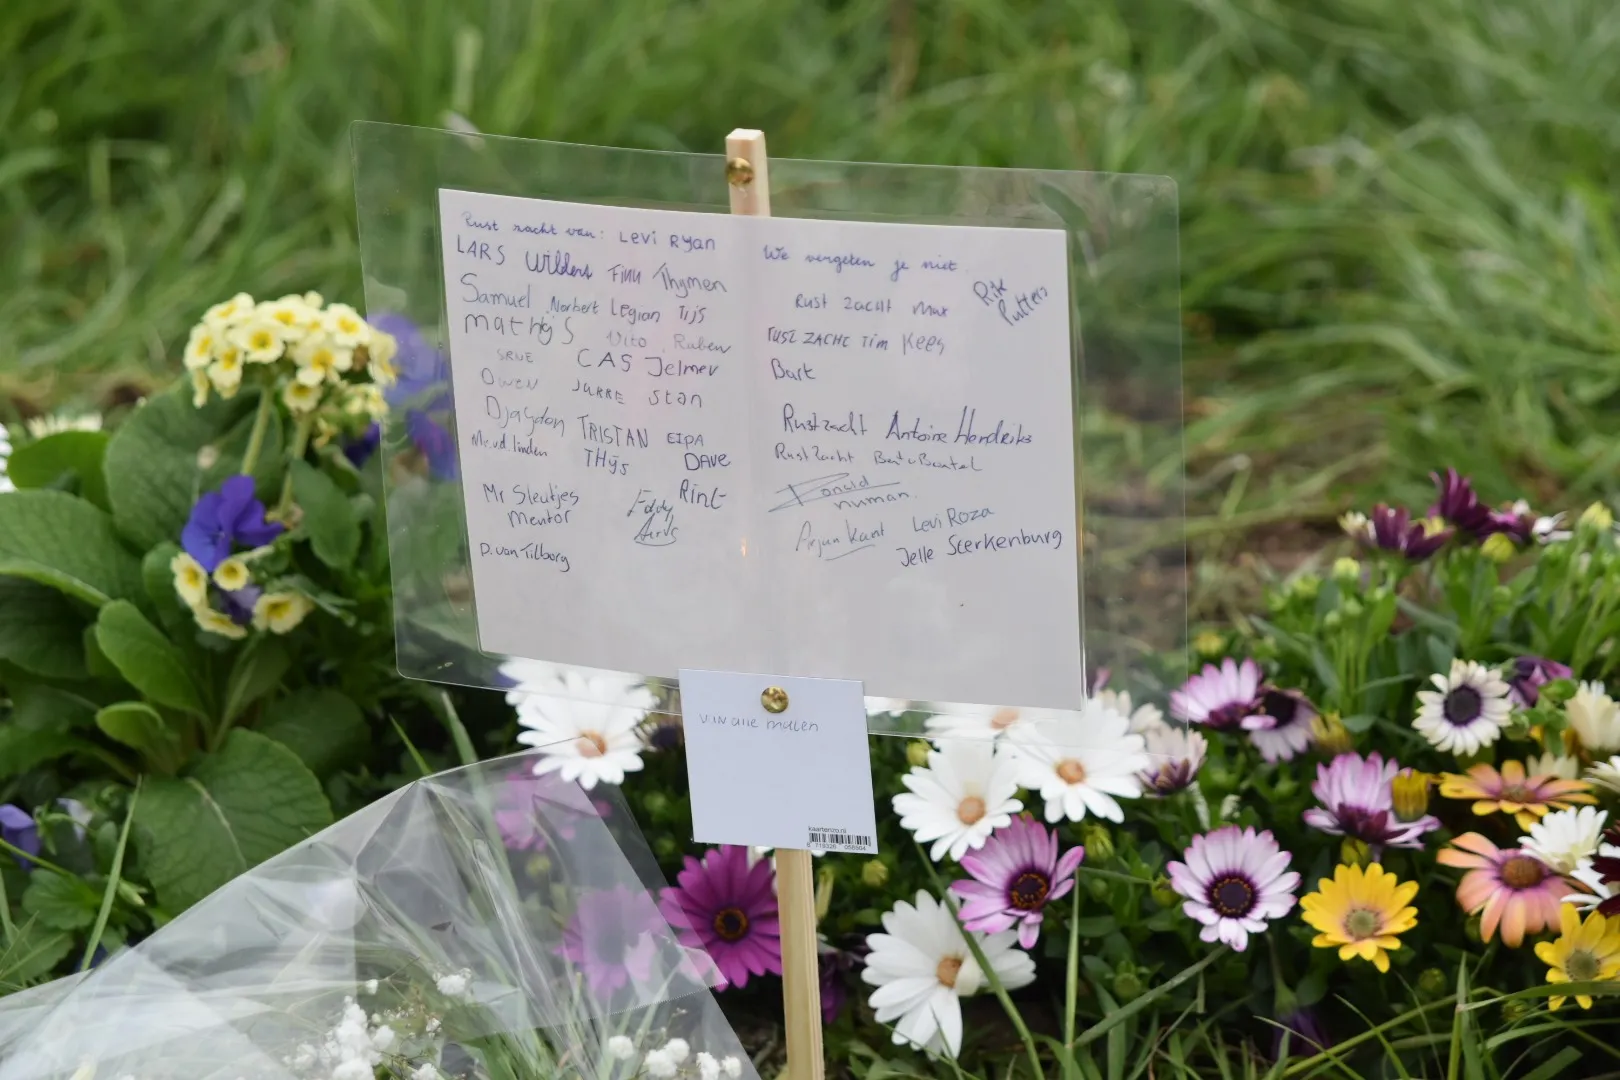 Rust zacht van: Levi Ryan
LARS Willem Finn Thymen
Samuel Norbert Legian Tijs
Mathijs Vito Ruben
CAS Jelmer
Owen JURRE Stan
Djaydon TRISTAN
Mr. v.d. linden THijs DAVE
Mr Sleutjes Eddy Rint
Mentor
D. van Tilborg
We vergeten je niet.
Rik
Putters
Rust zacht Max
RUST ZACHT Tim Kees
Bart
Rust zacht Antoine Hendriks
Rust zacht
numan.
Arjan Kant Levi Roza
Jelle Sterkenburg
van alle
kaartenzo.nl